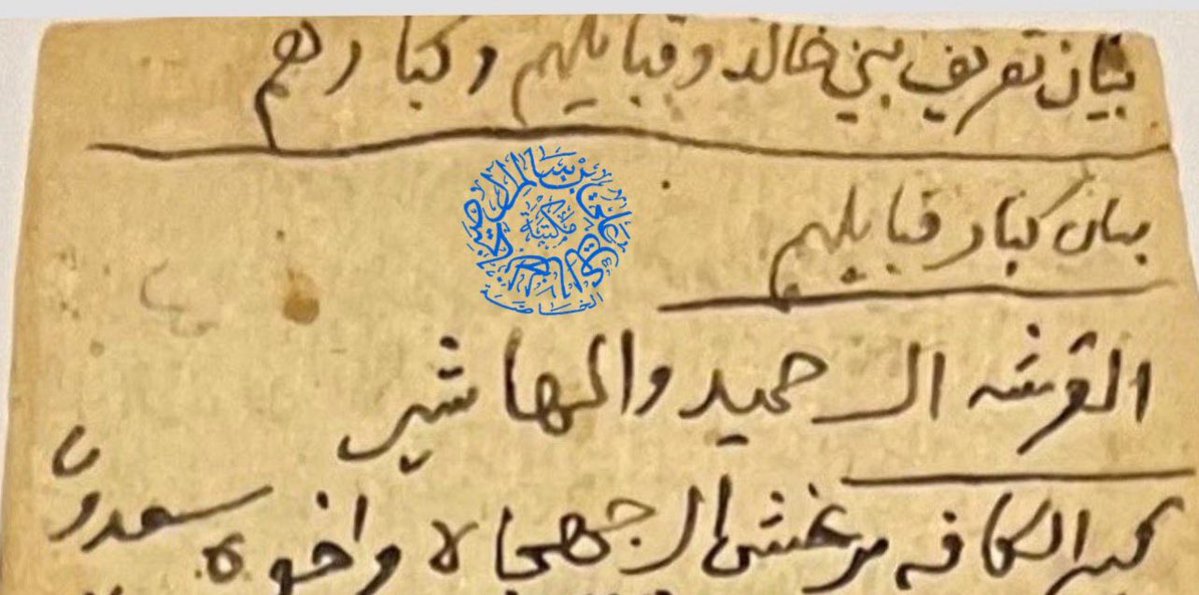 بيان تعريف بني خالد وقبايلهم وكبارهم
بيان كبار قبايلهم
القرشه ال حميد والمهاشير
كبير الكافه مرغش ال جهجاه واخوه سعدون
مكتبة
الخاصة